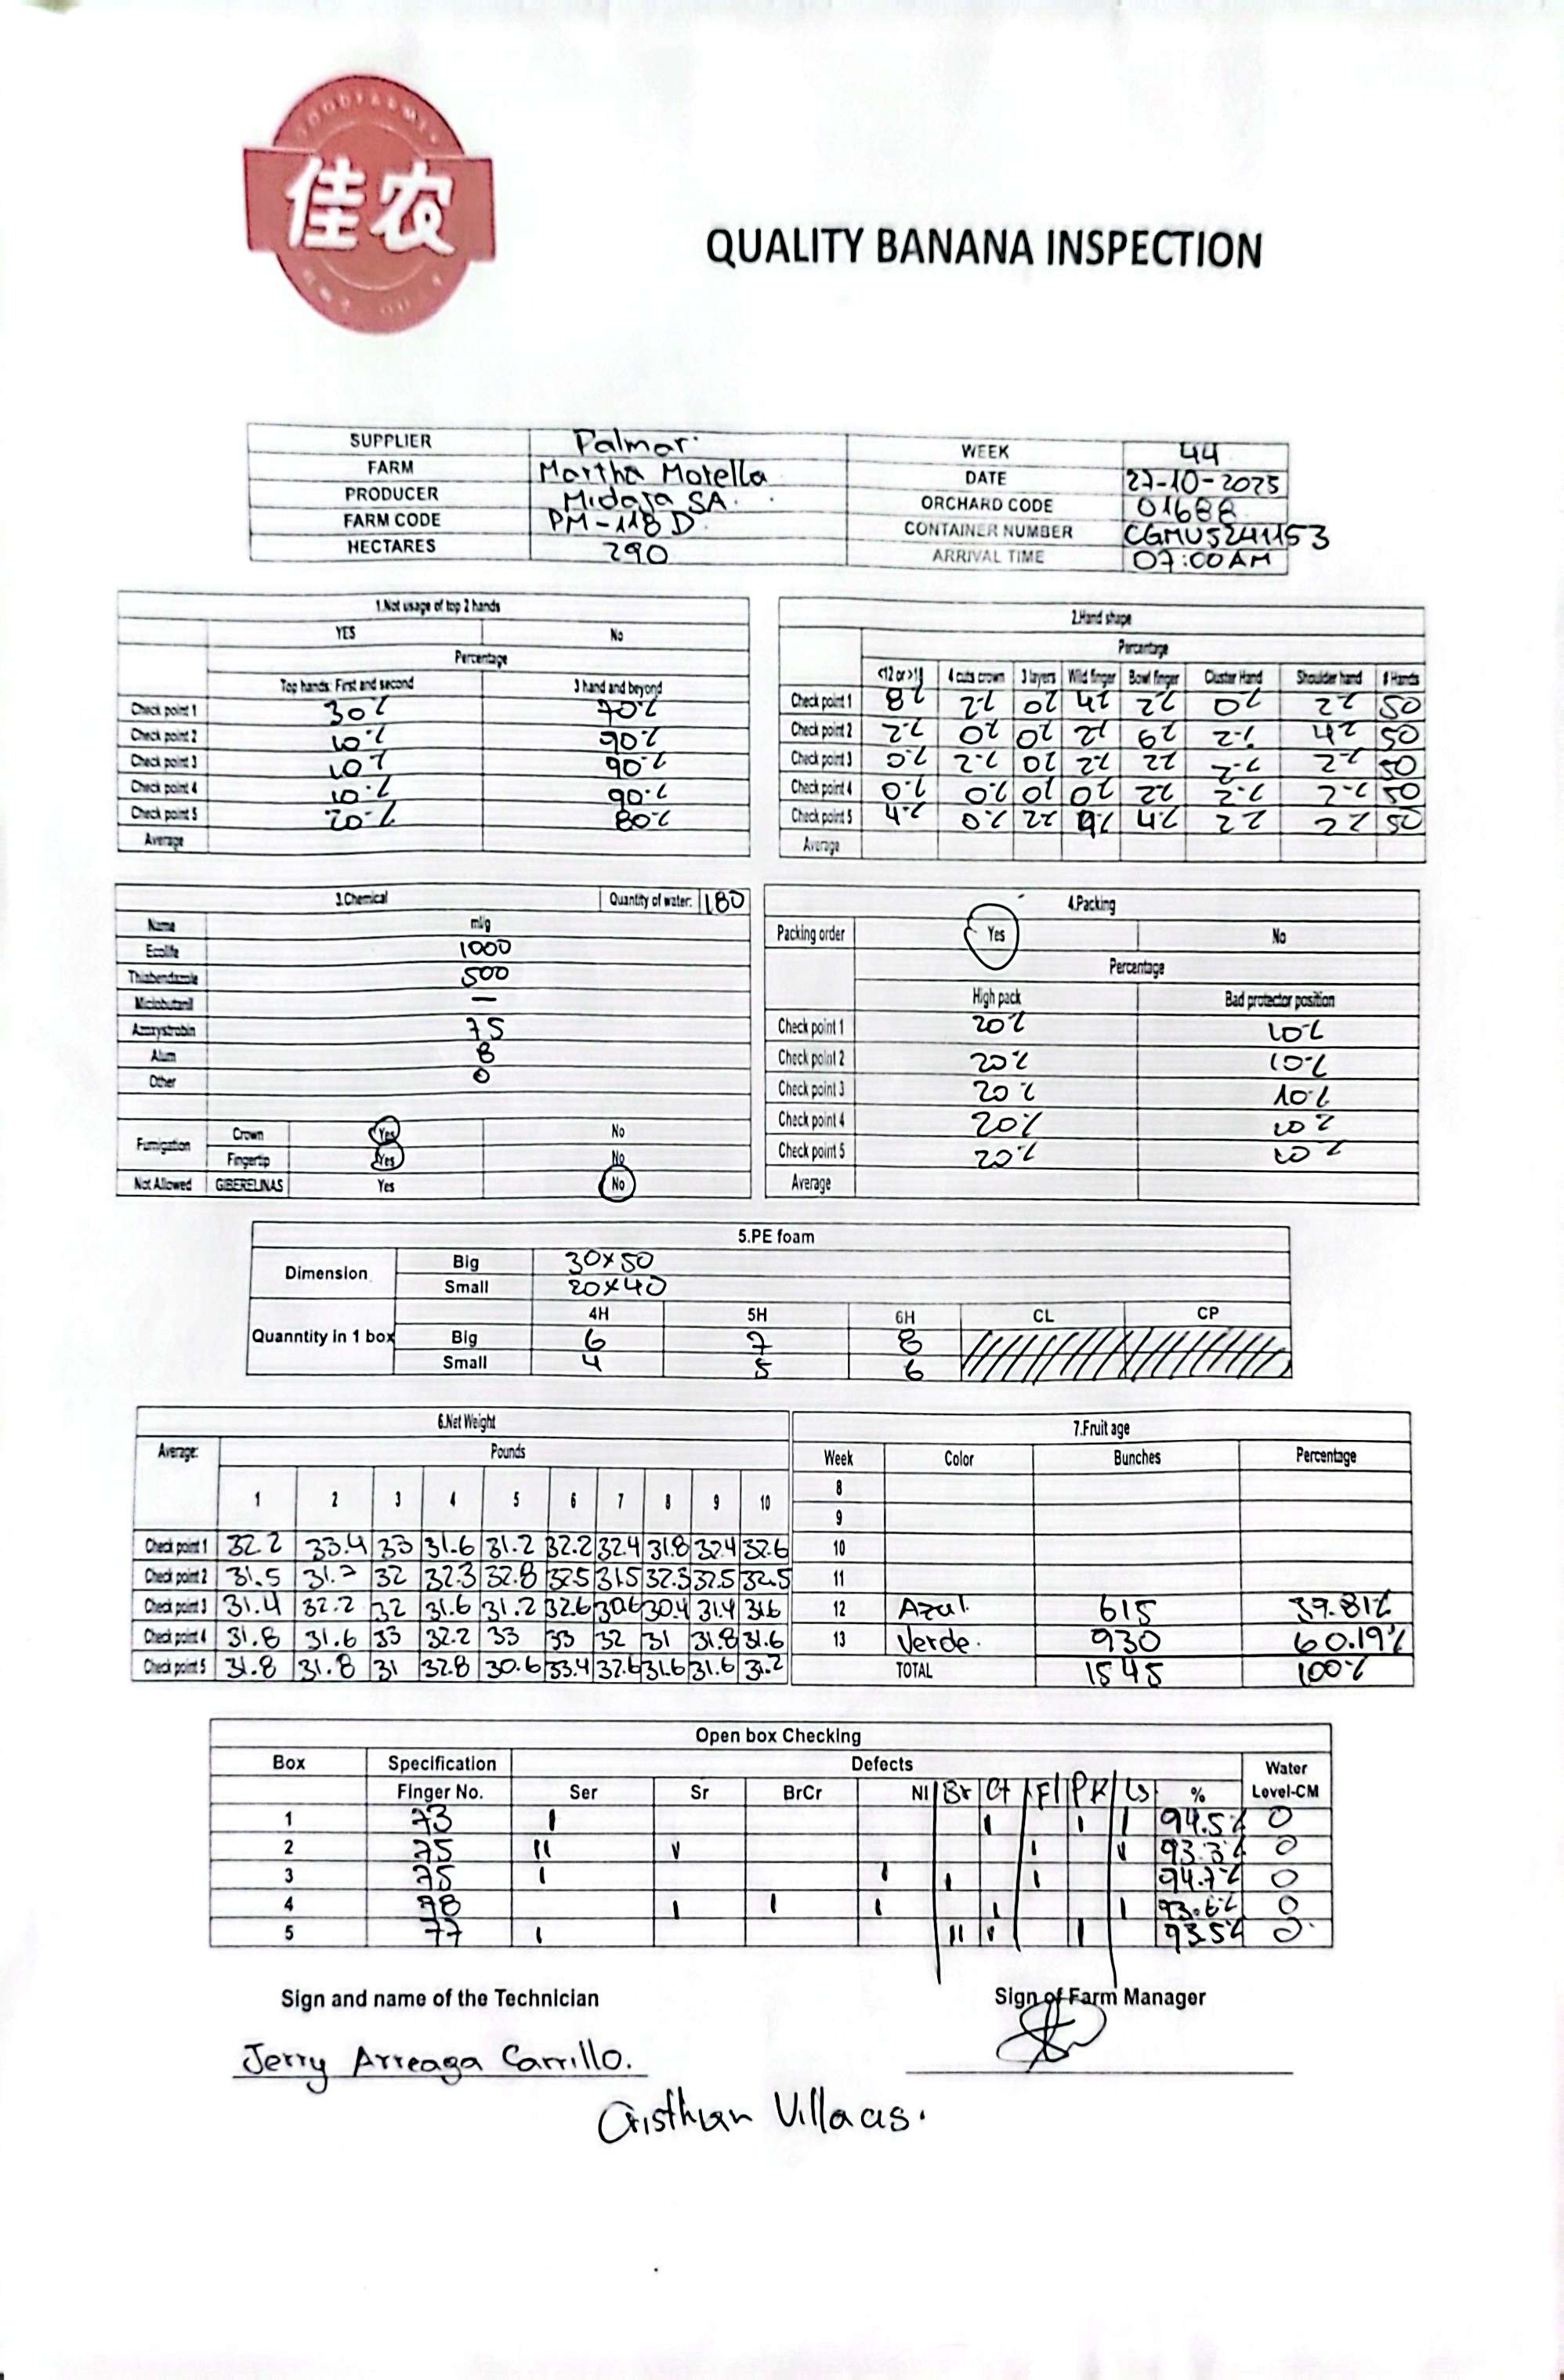 GOODFARMER
佳农
QUALITY BANANA INSPECTION
SUPPLIER Palmar WEEK 44
FARM Martha Morella DATE 27-10-2025
PRODUCER Midasa SA. ORCHARD CODE 01688
FARM CODE PM-118 D. CONTAINER NUMBER CGMU5241153
HECTARES 290 ARRIVAL TIME 07:00 AM
1.Not usage of top 2 hands
YES No
Percentage
Top hands: First and second 3 hand and beyond
Check point 1 30% 70%
Check point 2 10% 90%
Check point 3 10% 90%
Check point 4 10% 90%
Check point 5 20% 80%
Average
2.Hand shape
Percentage
4 cuts crown 3 layers Wild finger Bowl finger Cluster Hand Shoulder hand # Hands
Check point 1 8% 2% 0% 4% 2% 0% 2% 50
Check point 2 2% 0% 0% 2% 6% 2% 4% 50
Check point 3 0% 2% 0% 2% 2% 2% 2% 50
Check point 4 0% 0% 0% 0% 2% 2% 2% 50
Check point 5 4% 0% 2% 4% 2% 2% 50
Average
3.Chemical Quantity of water: 180
Name ml/g
Ecolife 1000
Thiabendazole 500
Miclobutanil —
Azoxystrobin 75
Alum 8
Other 0
Fumigation Crown Yes No
Fingertip Yes No
Not Allowed GIBERELINAS Yes No
4.Packing
Packing order Yes No
Percentage
High pack Bad protector position
Check point 1 20% 10%
Check point 2 20% 10%
Check point 3 20% 10%
Check point 4 20% 10%
Check point 5 20% 10%
Average
5.PE foam
Dimension Big 30x50
Small 20x40
4H 5H 6H CL CP
Quanntity in 1 box Big 6 7 8
Small 4 5 6
6.Net Weight
Average: Pounds
1 2 3 4 5 6 7 8 9 10
Check point 1 32.2 33.4 33 31.6 31.2 32.2 32.4 31.8 32.4 32.6
Check point 2 31.5 31.7 32 32.3 32.8 32.5 31.5 32.3 32.5 32.5
Check point 3 31.4 32.2 32 31.6 31.2 32.6 30.6 30.4 31.4 31.6
Check point 4 31.8 31.6 33 32.2 33 33 32 31 31.8 31.6
Check point 5 31.8 31.8 31 32.8 30.6 33.4 32.6 31.6 31.6 31.2
7.Fruit age
Week Color Bunches Percentage
8
9
10
11
12 Azul. 615 39.81%
13 Verde. 930 60.19%
TOTAL 1545 100%
Open box Checking
Box Specification Defects Water
Finger No. Ser Sr BrCr NI Br Ct Fl PK Ls % Level-CM
1 73 I I I I 94.5% 0
2 75 II I I I 93.3% 0
3 75 I I I I 94.7% 0
4 78 I I I I I 93.6% 0
5 77 I II I I 93.5% 0
Sign and name of the Technician Sign of Farm Manager
Jerry Arreaga Carrillo.
Cristhian Villacis.